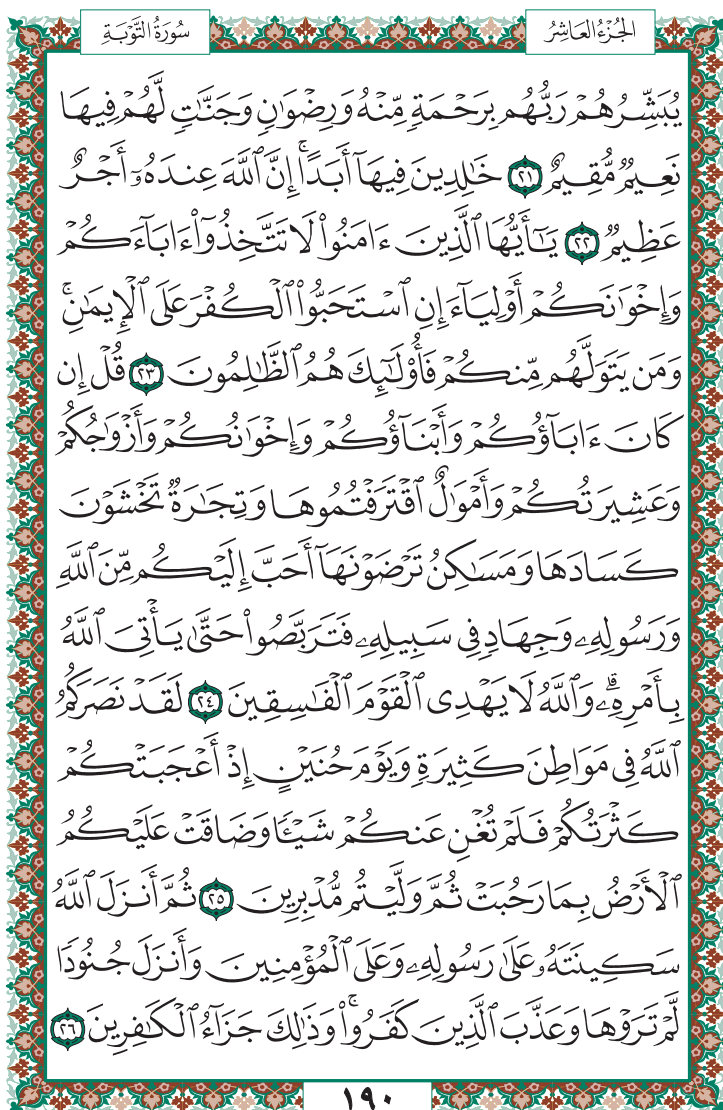 الجُزْءُ العَاشِرُ
سُورَةُ التَّوْبَةِ
يُبَشِّرُهُمْ رَبُّهُم بِرَحْمَةٍ مِّنْهُ وَرِضْوَٰنٍ وَجَنَّٰتٍ لَّهُمْ فِيهَا
نَعِيمٌ مُّقِيمٌ ٢١ خَٰلِدِينَ فِيهَآ أَبَدًا ۚ إِنَّ ٱللَّهَ عِندَهُۥٓ أَجْرٌ
عَظِيمٌ ٢٢ يَٰٓأَيُّهَا ٱلَّذِينَ ءَامَنُوا۟ لَا تَتَّخِذُوٓا۟ ءَابَآءَكُمْ
وَإِخْوَٰنَكُمْ أَوْلِيَآءَ إِنِ ٱسْتَحَبُّوا۟ ٱلْكُفْرَ عَلَى ٱلْإِيمَٰنِ ۚ
وَمَن يَتَوَلَّهُم مِّنكُمْ فَأُو۟لَٰٓئِكَ هُمُ ٱلظَّٰلِمُونَ ٢٣ قُلْ إِن
كَانَ ءَابَآؤُكُمْ وَأَبْنَآؤُكُمْ وَإِخْوَٰنُكُمْ وَأَزْوَٰجُكُمْ
وَعَشِيرَتُكُمْ وَأَمْوَٰلٌ ٱقْتَرَفْتُمُوهَا وَتِجَٰرَةٌ تَخْشَوْنَ
كَسَادَهَا وَمَسَٰكِنُ تَرْضَوْنَهَآ أَحَبَّ إِلَيْكُم مِّنَ ٱللَّهِ
وَرَسُولِهِۦ وَجِهَادٍ فِى سَبِيلِهِۦ فَتَرَبَّصُوا۟ حَتَّىٰ يَأْتِىَ ٱللَّهُ
بِأَمْرِهِۦ ۗ وَٱللَّهُ لَا يَهْدِى ٱلْقَوْمَ ٱلْفَٰسِقِينَ ٢٤ لَقَدْ نَصَرَكُمُ
ٱللَّهُ فِى مَوَاطِنَ كَثِيرَةٍ وَيَوْمَ حُنَيْنٍ إِذْ أَعْجَبَتْكُمْ
كَثْرَتُكُمْ فَلَمْ تُغْنِ عَنكُمْ شَيْـًٔا وَضَاقَتْ عَلَيْكُمُ
ٱلْأَرْضُ بِمَا رَحُبَتْ ثُمَّ وَلَّيْتُم مُّدْبِرِينَ ٢٥ ثُمَّ أَنزَلَ ٱللَّهُ
سَكِينَتَهُۥ عَلَىٰ رَسُولِهِۦ وَعَلَى ٱلْمُؤْمِنِينَ وَأَنزَلَ جُنُودًا
لَّمْ تَرَوْهَا وَعَذَّبَ ٱلَّذِينَ كَفَرُوا۟ ۚ وَذَٰلِكَ جَزَآءُ ٱلْكَٰفِرِينَ ٢٦
١٩٠